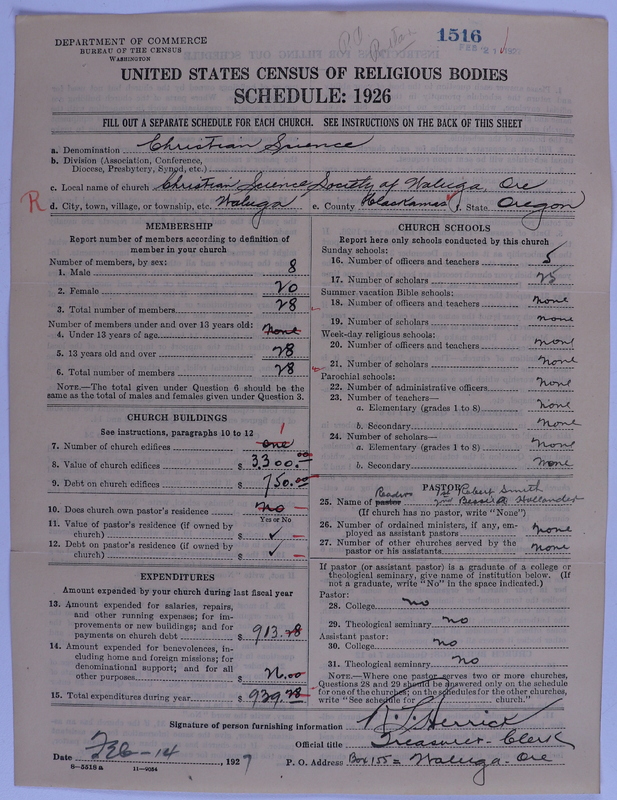 DEPARTMENT OF COMMERCE
BUREAU OF THE CENSUS
WASHINGTON
1516
FEB 21 1927
UNITED STATES CENSUS OF RELIGIOUS BODIES
SCHEDULE: 1926
FILL OUT A SEPARATE SCHEDULE FOR EACH CHURCH. SEE INSTRUCTIONS ON THE BACK OF THIS SHEET
a. Denomination Christian Science
b. Division (Association, Conference,
Diocese, Presbytery, Synod, etc.)
c. Local name of church Christian Science Society of Waluga, Ore
R d. City, town, village, or township, etc. Waluga e. County Clackamas f. State Oregon
MEMBERSHIP
Report number of members according to definition of
member in your church
Number of members, by sex:
1. Male 8
2. Female 20
3. Total number of members 28
Number of members under and over 13 years old:
4. Under 13 years of age None
5. 13 years old and over 28
6. Total number of members 28
NOTE.—The total given under Question 6 should be
same as the total of males and females given under Question 3.
CHURCH BUILDINGS
See instructions, paragraphs 10 to 12
7. Number of church edifices one 1
8. Value of church edifices $ 3,300.00
9. Debt on church edifices $ 750.00
10. Does church own pastor's residence No
Yes or No
11. Value of pastor's residence (if owned by
church) $ ✓
12. Debt on pastor's residence (if owned by
church) $ ✓
EXPENDITURES
Amount expended by your church during last fiscal year
13. Amount expended for salaries, repairs,
and other running expenses; for im-
provements or new buildings; and for
payments on church debt $ 913.28
14. Amount expended for benevolences, in-
cluding home and foreign missions; for
denominational support; and for all
other purposes $ 26.00
15. Total expenditures during year $ 939.28
CHURCH SCHOOLS
Report here only schools conducted by this church
Sunday schools:
16. Number of officers and teachers 5
17. Number of scholars 25
Summer vacation Bible schools:
18. Number of officers and teachers none
19. Number of scholars none
Week-day religious schools:
20. Number of officers and teachers none
21. Number of scholars None
Parochial schools:
22. Number of administrative officers None
23. Number of teachers—
a. Elementary (grades 1 to 8) None
b. Secondary None
24. Number of scholars—
a. Elementary (grades 1 to 8) None
b. Secondary None
PASTOR
Readers 1st Robert Smith
25. Name of pastor 2nd Bessie Hollander
(If church has no pastor, write "None")
26. Number of ordained ministers, if any, em-
ployed as assistant pastors None
27. Number of other churches served by the
pastor or his assistants None
If pastor (or assistant pastor) is a graduate of a college or
theological seminary, give name of institution below. (If
not a graduate, write "No" in the space indicated.)
Pastor:
28. College no
29. Theological seminary no
Assistant pastor:
30. College no
31. Theological seminary no
NOTE.—Where one pastor serves two or more churches,
Questions 28 and 29 should be answered only on the schedule
for one of the churches; on the schedules for the other churches,
write "See schedule for church."
Signature of person furnishing information Herrick
Official title Treasurer - Clerk
Date Feb-14, 1927 P. O. Address Box 155 = Waluga - Ore
8-5518a 11-9054